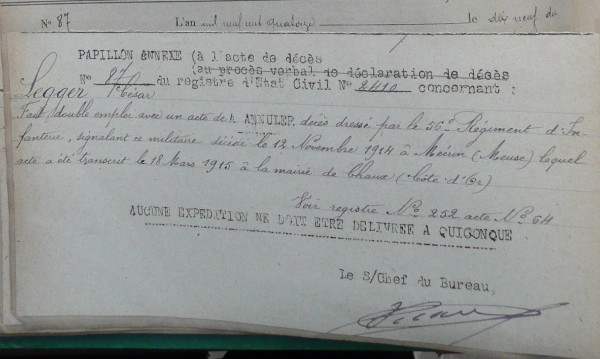 N° 87 L'an mil neuf cent quatorze le dix neuf du
PAPILLON ANNEXE (à l'acte de décès
(au procès verbal de déclaration de décès
N° 870 du registre d'Etat Civil N° 2410 concernant :
Legger César
Fait double emploi avec un acte de A ANNULER décès dressé par le 56e Régiment d'In-
fanterie, signalant ce militaire décédé le 12 Novembre 1914 à Mécrin (Meuse) lequel
acte a été transcrit le 18 Mars 1915 à la mairie de Chaux (Côte d'Or)
Voir registre N° 252 acte N° 64
AUCUNE EXPEDITION NE DOIT ETRE DELIVREE A QUICONQUE
Le S/Chef du Bureau,